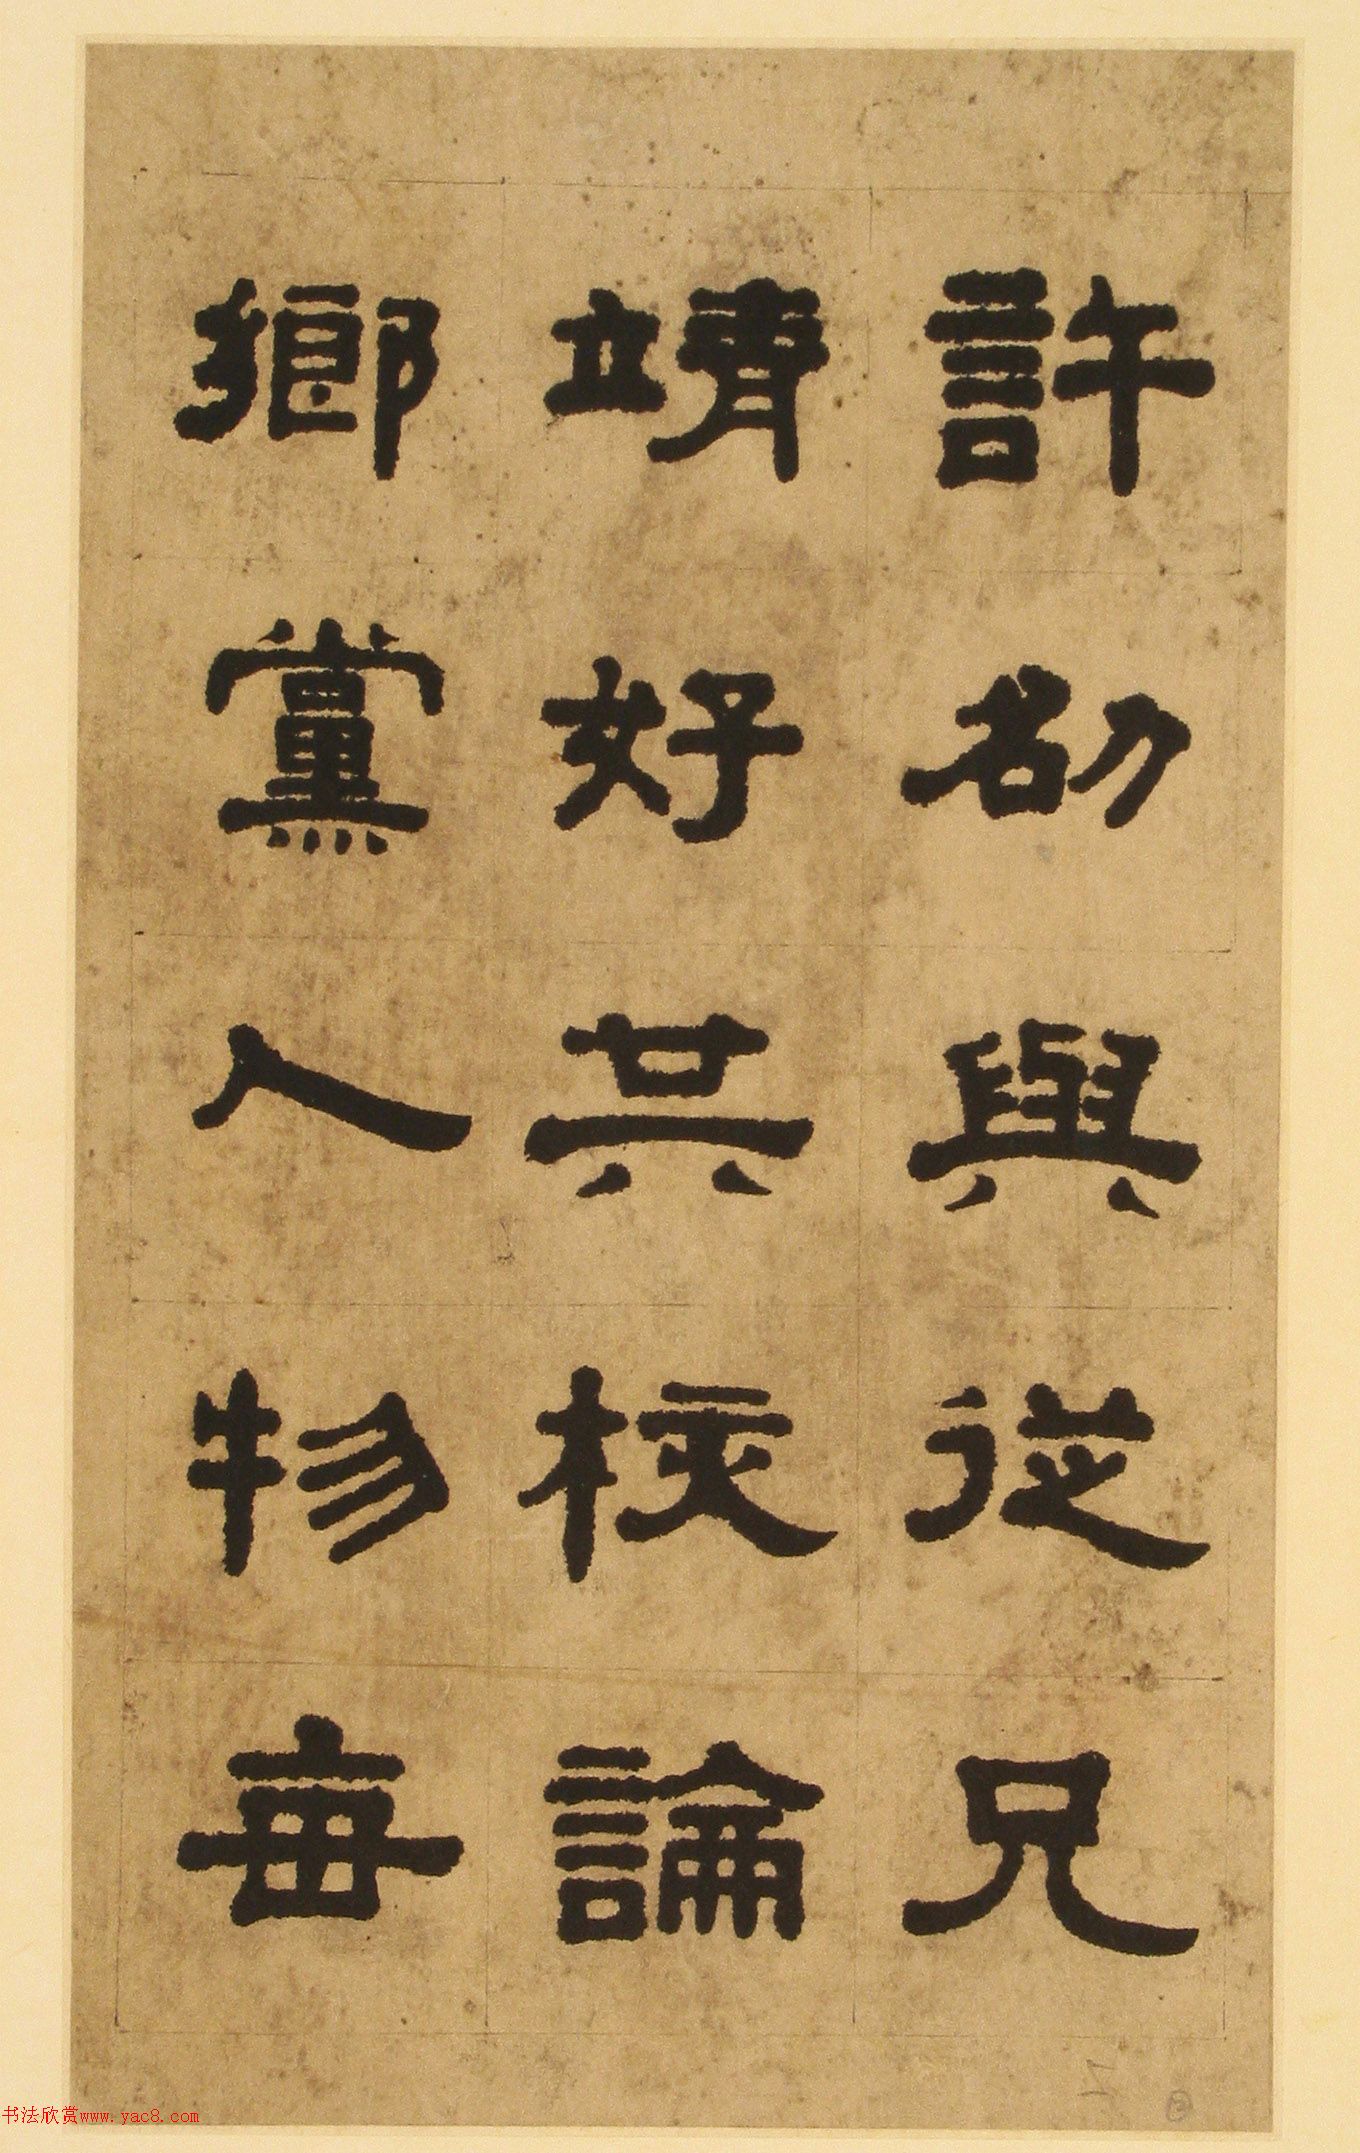 許劭與從兄
靖好共校論
鄉黨人物每
书法欣赏www.yac8.com